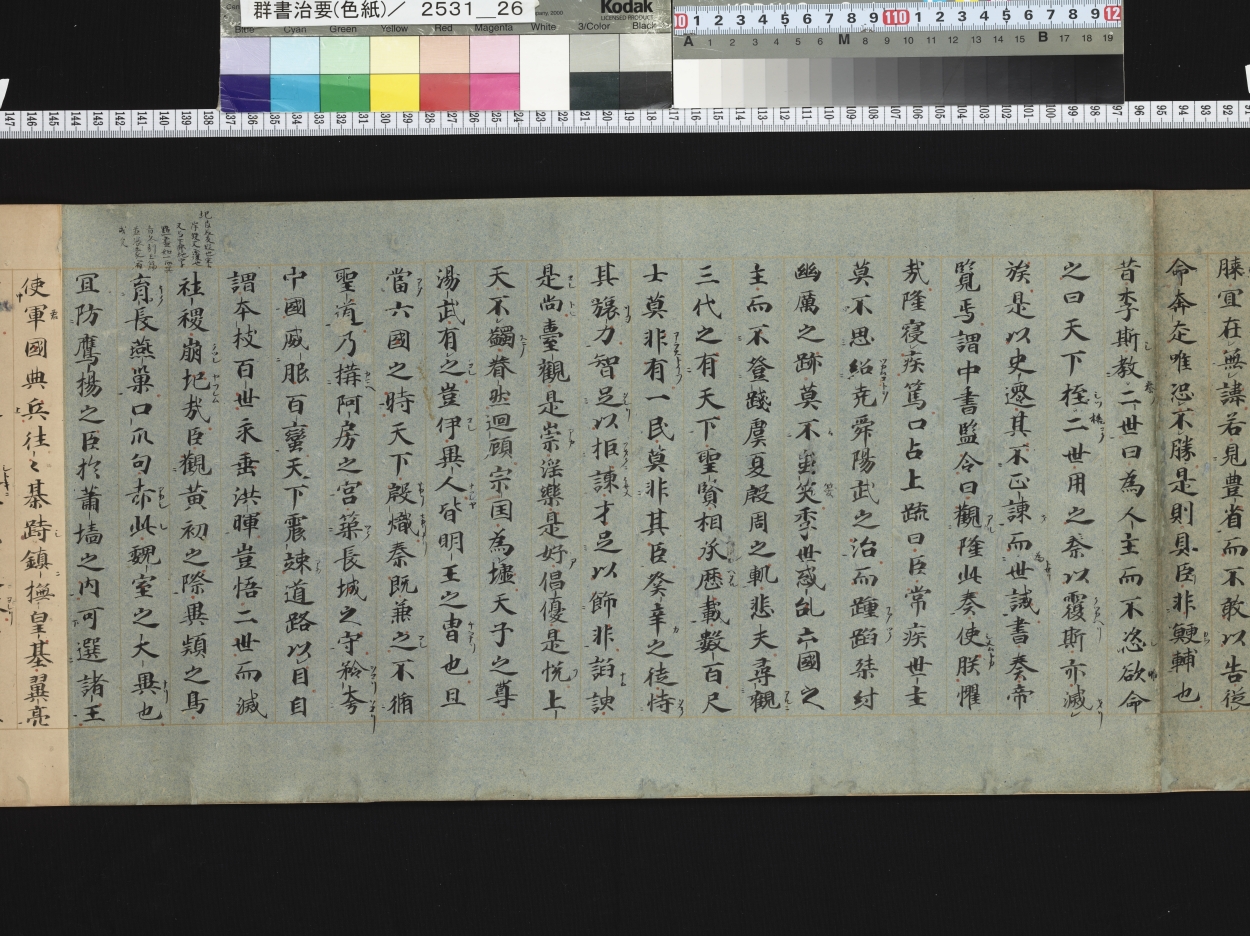 群書治要(色紙)/ 2531__26
Kodak
LICENSED PRODUCT
Blue Cyan Green Yellow Red Magenta White 3/Color Black
膝冝在無諱若見豊省而不敢以告従
命奔走唯恐不勝是則具臣非鯁輔也
昔李斯教二世曰為人主而不恣欲命
之曰天下桎二世用之秦以覆斯亦滅
族是以史遷其不正諫而世誡書奏帝
覧焉謂中書監令曰觀隆此奏使朕懼
哉隆寝疾篤口占上疏曰臣常疾世主
莫不思紹尭舜陽武之治而踵蹈桀紂
幽厲之跡莫不蚩笑季世惑乱亡國之
主而不登踐虞夏殷周之軌悲夫尋觀
三代之有天下聖賢相承歴載數百尺
士莫非有一民莫非其臣癸辛之徒恃
其旅力智足以拒諫才足以飾非諂諛
是尚臺觀是崇淫樂是好倡優是悦上
天不蠲眷然迴顧宗国為墟天子之尊
湯武有之豈伊異人皆明王之曺也且
當六國之時天下殷熾秦既兼之不脩
聖道乃搆阿房之宮築長城之守矜夸
中國威服百蠻天下震竦道路以目自
謂本枝百世永垂洪暉豈悟二世而滅
社稷崩圮哉臣觀黄初之際異類之鳥
育長燕巣口爪匈赤此魏室之大異也
冝防鷹揚之臣於蕭墻之内可選諸王
使軍國典兵往々棊跱鎮撫皇基翼亮